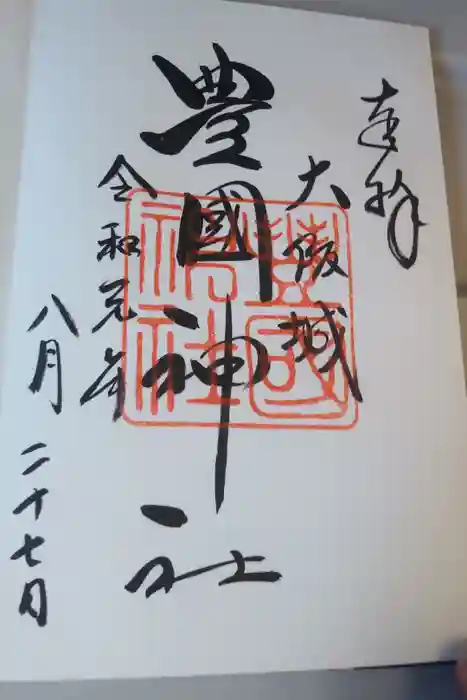 奉拝
大阪城
豊國神社
令和元年
八月二十七日
豊國神社